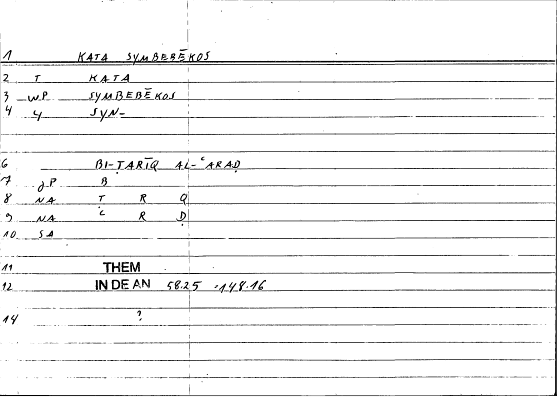 1 KATA SYMBEBĒKOS
2 T KATA
3 WP SYMBEBĒKOS
4 4 SYN-
6 BI-ṬARĪQ AL-ʿARAḌ
7 JP B
8 NA Ṭ R Q
9 NA ʿ R Ḍ
10 SA
11 THEM
12 IN DE AN 58.25 -148.16
14 ?